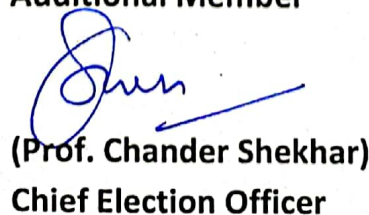 Additional Member
(Prof. Chander Shekhar)
Chief Election Officer